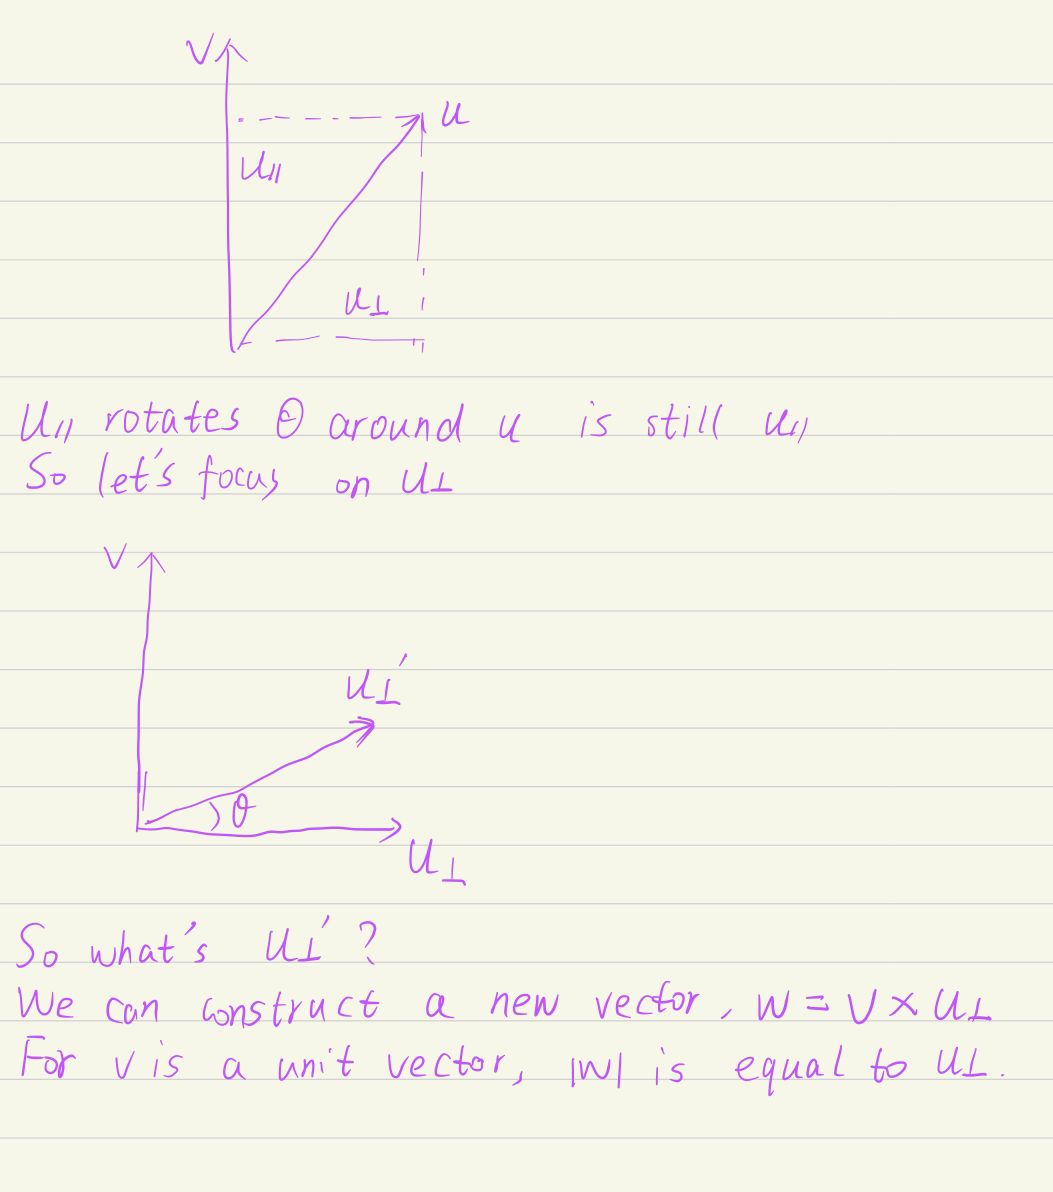 V
u
u//
u⊥
u// rotates θ around u is still u//
So let's focus on u⊥
v
u⊥'
θ
u⊥
So what's u⊥'?
We can construct a new vector, w = v × u⊥
For v is a unit vector, |w| is equal to u⊥.